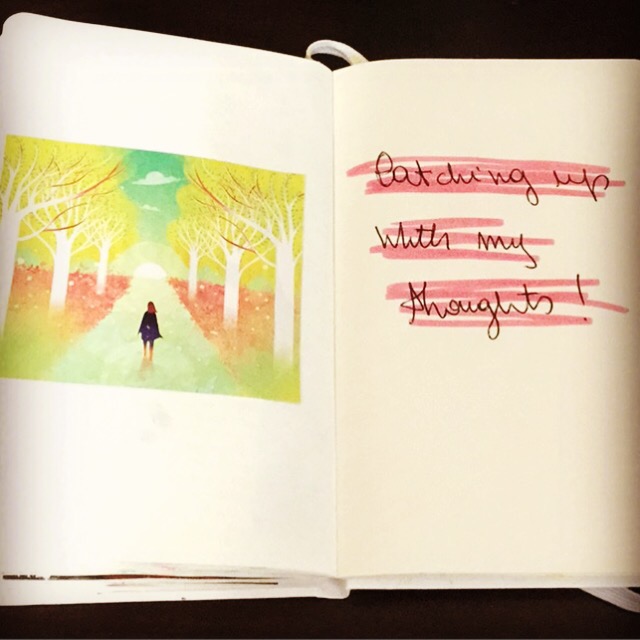 Catching up
with my
thoughts!